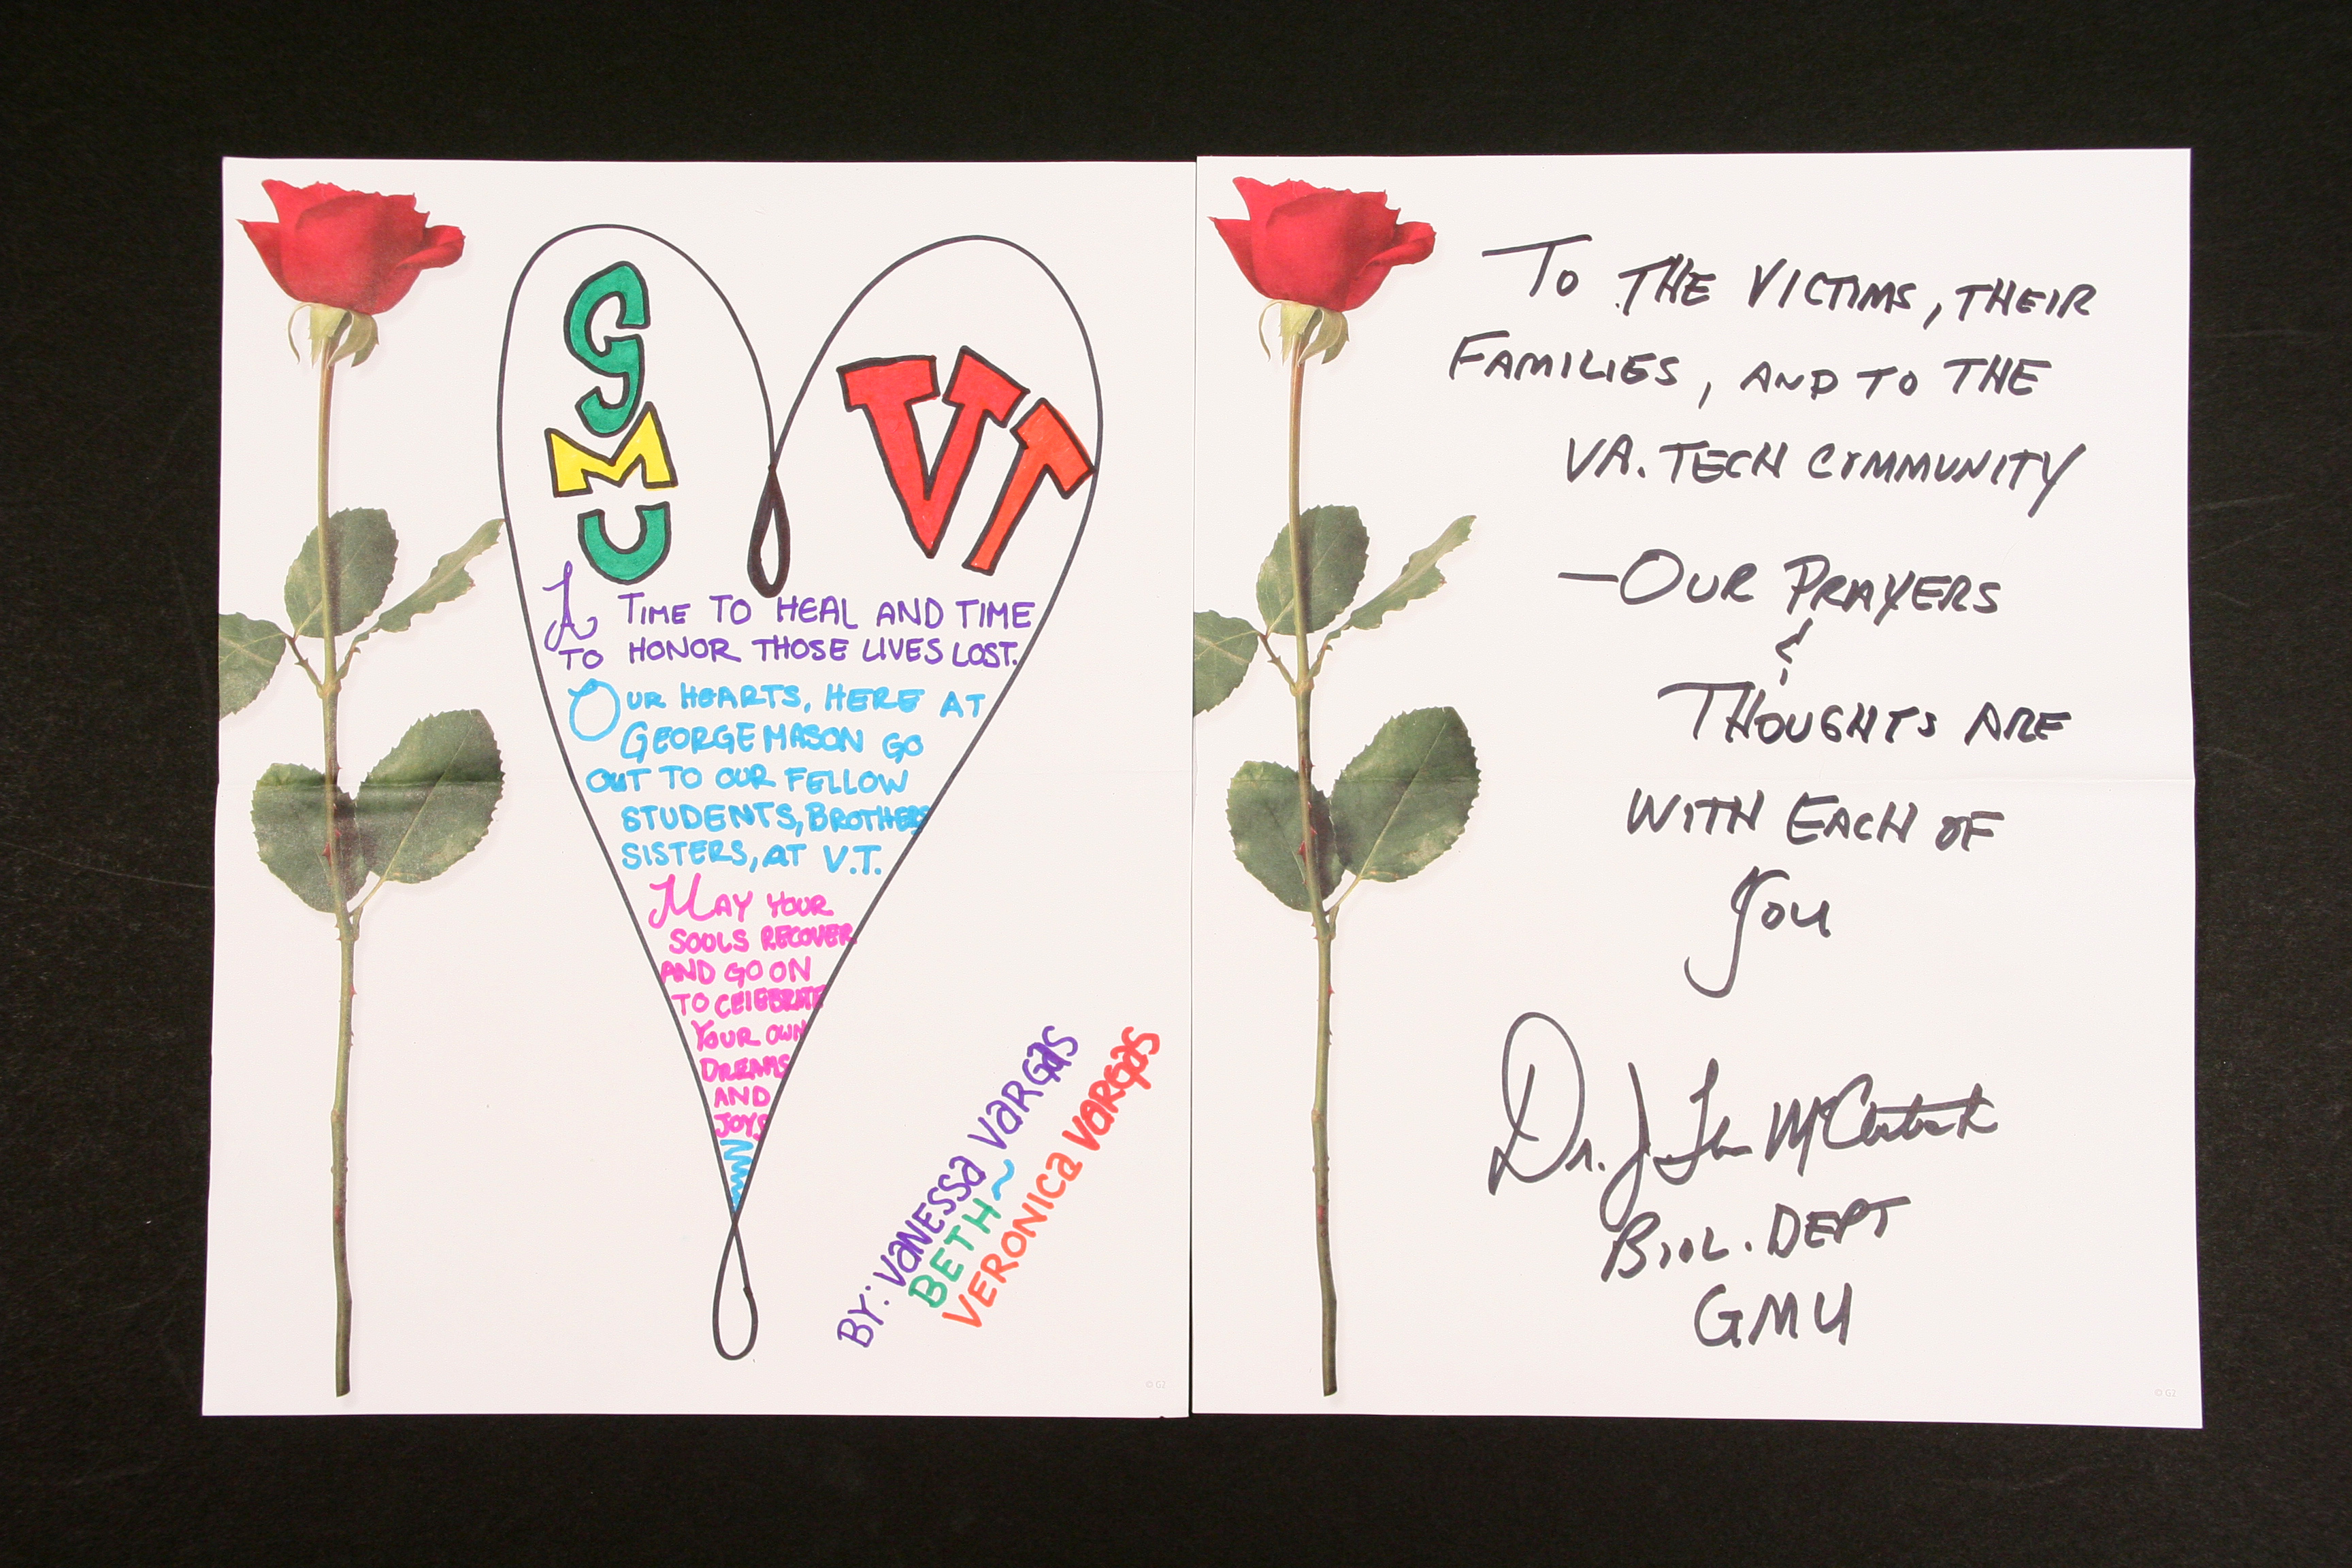 GMU
VT
A TIME TO HEAL AND TIME
TO HONOR THOSE LIVES LOST.
OUR HEARTS, HERE AT
GEORGE MASON GO
OUT TO OUR FELLOW
STUDENTS, BROTHERS
SISTERS, AT V.T.
MAY YOUR
SOULS RECOVER
AND GO ON
TO CELEBRATE
YOUR OWN
DREAMS
AND
JOYS
BY: VANESSA VARGAS
BETH~
VERONICA VARGAS
© GZ
TO THE VICTIMS, THEIR
FAMILIES, AND TO THE
VA. TECH COMMUNITY
—OUR PRAYERS
&
THOUGHTS ARE
WITH EACH OF
YOU
Dr. J
BIOL. DEPT
GMU
© GZ